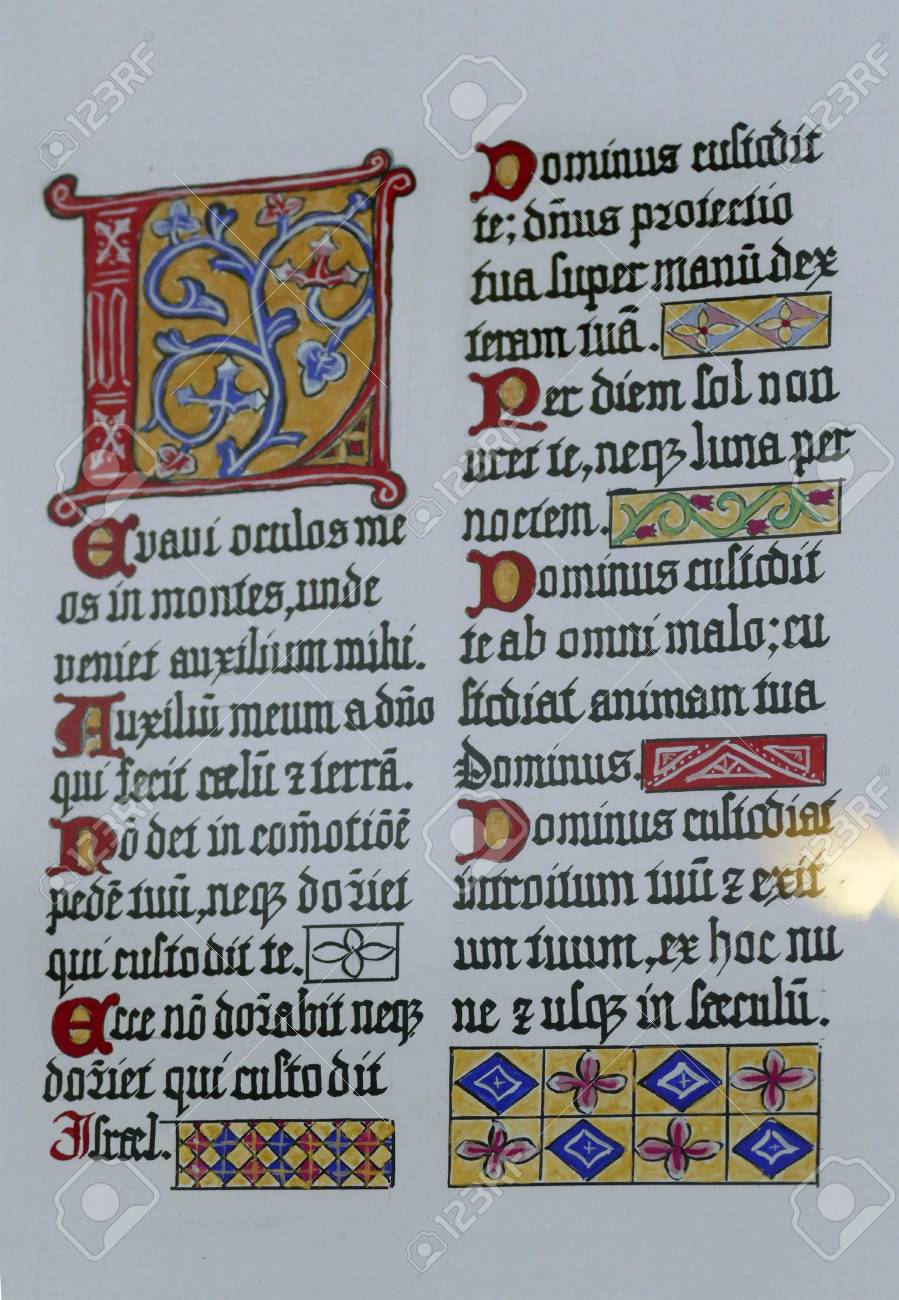 L
Evavi oculos me
os in montes, unde
veniet auxilium mihi.
Auxiliũ meum a dño
qui fecit cælũ ⁊ terrã.
Nõ det in com̃otiõẽ
pedẽ tuũ, neqꝫ dor̃iet
qui custodit te.
Ecce nõ dor̃abit neqꝫ
dor̃iet qui custodit
Israel.
Dominus custodit
te; dñus protectio
tua super manũ dex
teram tuã.
Per diem sol non
uret te, neqꝫ luna per
noctem.
Dominus custodit
te ab omni malo; cu
stodiat animam tua
Dominus.
Dominus custodiat
introitum tuũ ⁊ exit
um tuum, ex hoc nu
nc ⁊ usqꝫ in sæculũ.
123RF